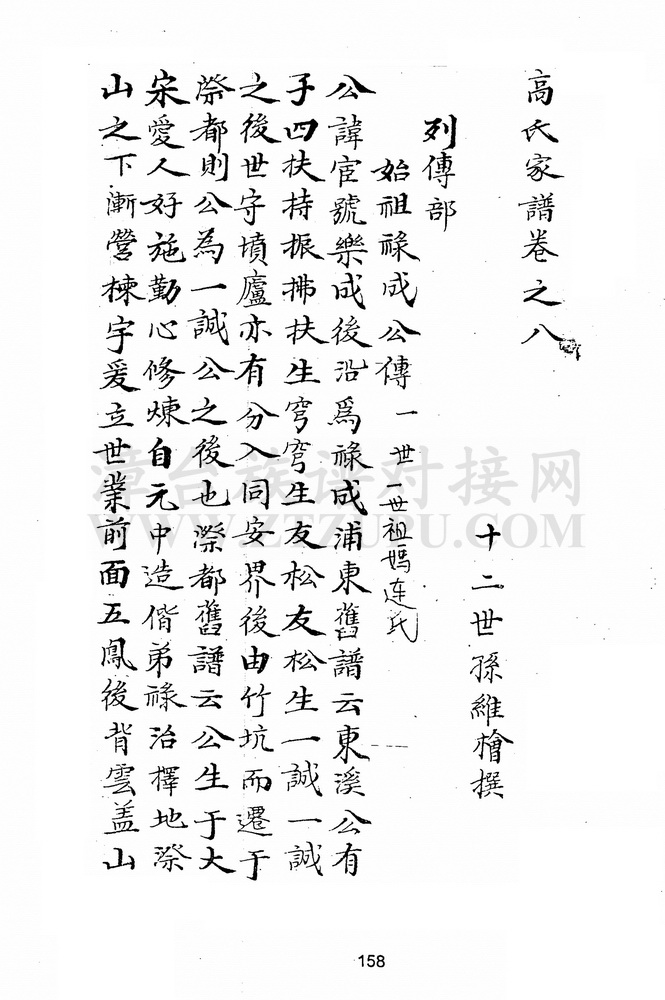 高氏家譜卷之八
十二世孫維檜撰
列傳部
始祖祿成公傳 一世 一世祖媽連氏
公諱宦號樂成後沿爲祿成浦東舊譜云東溪公有
子四扶持振拂扶生穹穹生友松友松生一誠一誠
之後世守墳廬亦有分入同安界後由竹坑而遷于
漈都則公為一誠公之後也漈都舊譜云公生于大
宋愛人好施勤心修煉自元中造偕弟祿治擇地漈
山之下漸營棟宇爰立世業前面五鳳後背雲盖山
漳台族谱对接网
WWW.ZTZUPU.COM
158